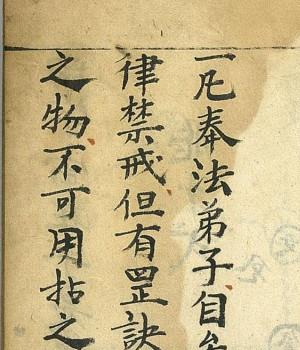 一凡奉法弟子自
律禁戒但有罡訣
之物不可用拈之